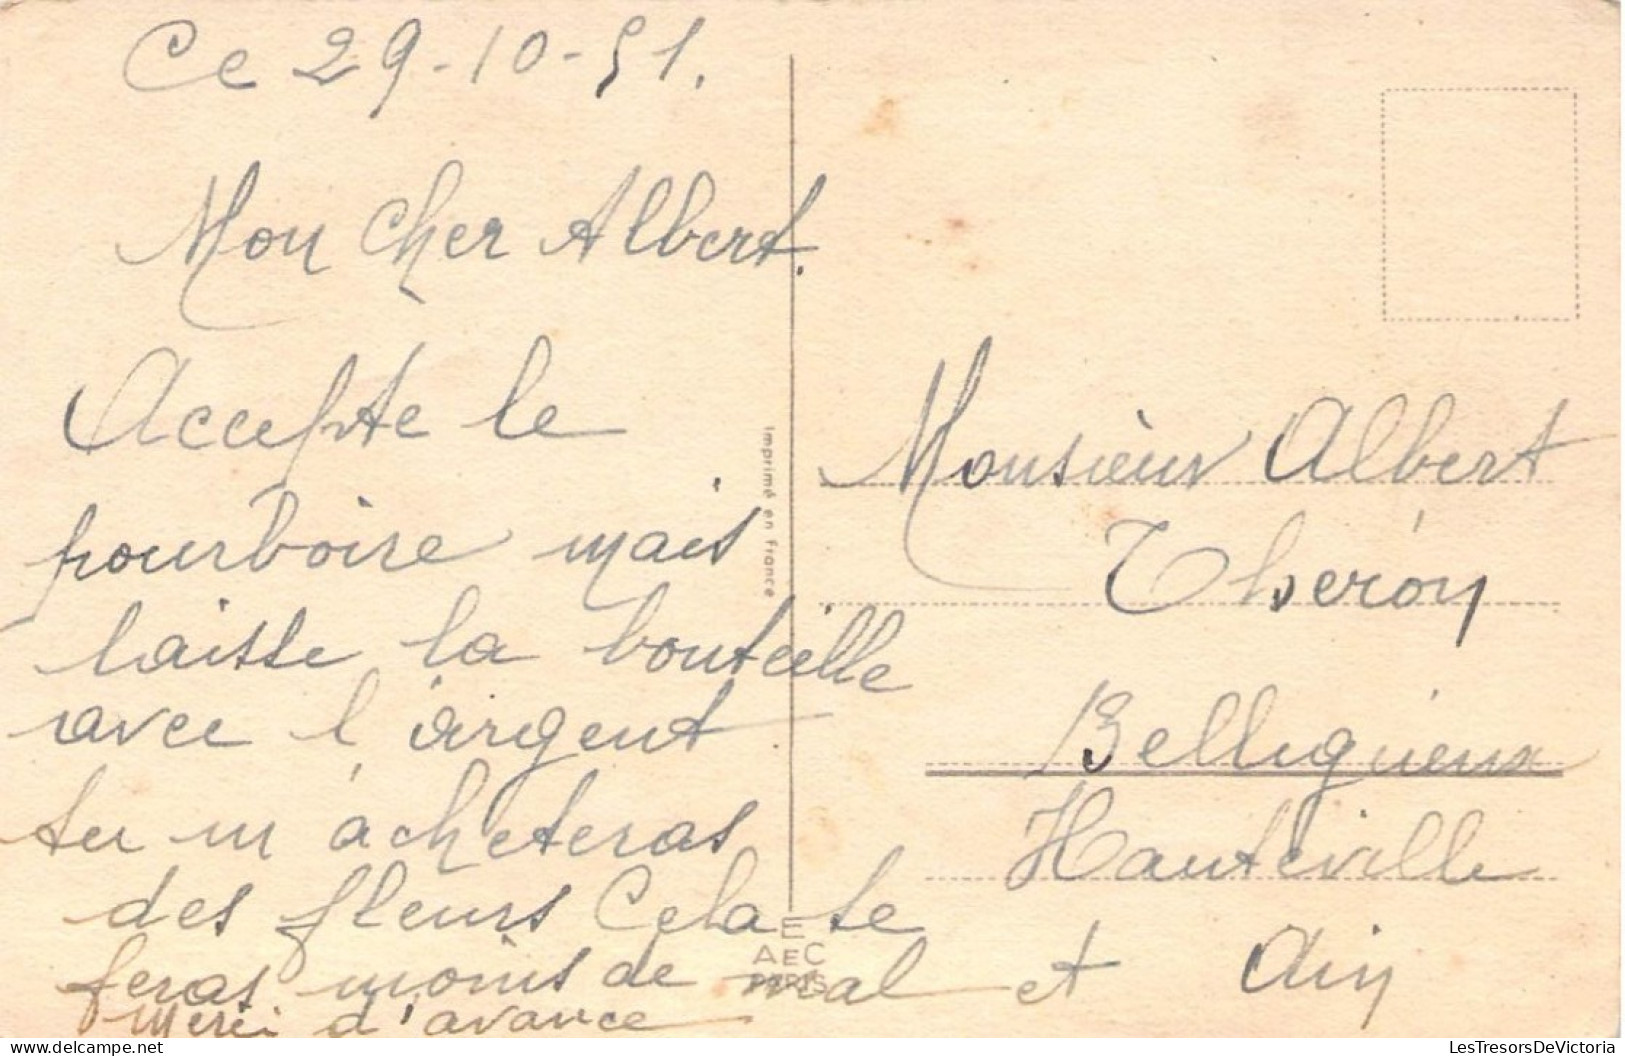 Ce 29-10-51.
Mon Cher Albert.
Accepte le
pourboire mais
laisse la bouteille
avec l'argent
tu m'acheteras
des fleurs Cela te
feras moins de mal et
Merci d'avance
Imprimé en France
E
AEC
PARIS
Monsieur Albert
Théron
Belligneux
Hauteville
Ain
LesTresorsDeVictoria
www.delcampe.net